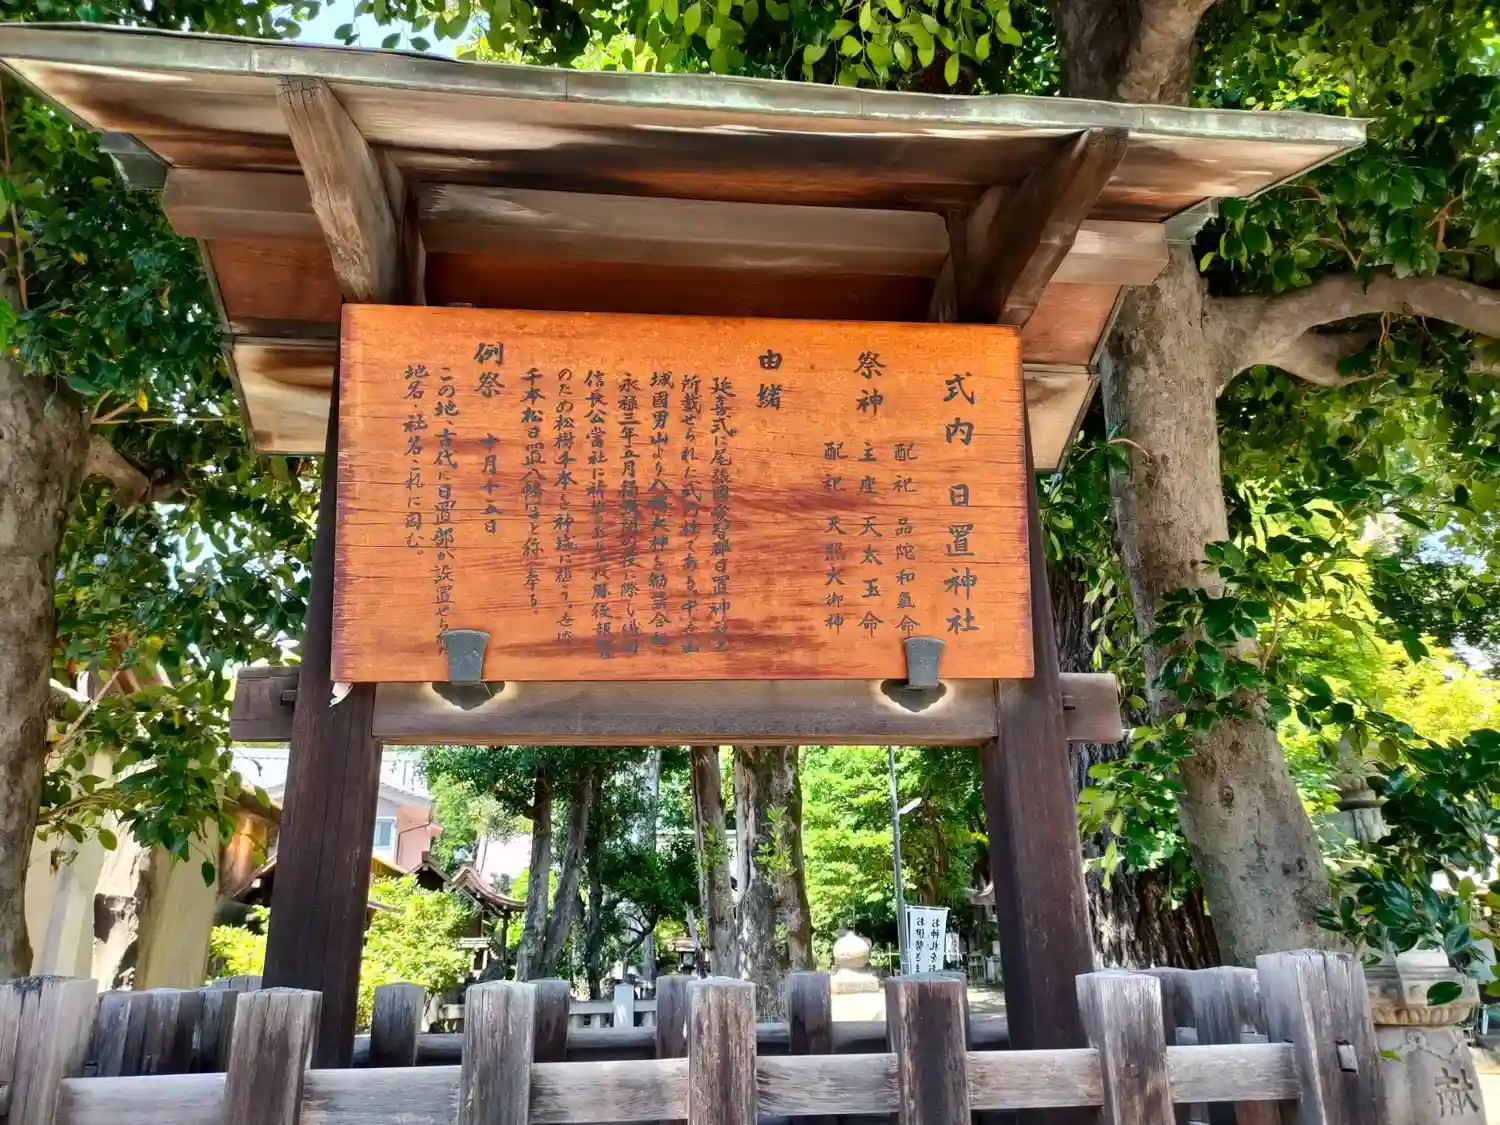 式内 日置神社
祭神
配祀 品陀和氣命
主座 天太玉命
配祀 天照大御神
由緒
延喜式に尾張國愛智郡日置神社と
所載せられた式内社である。中古山
城國男山より八幡大神を勧請合祀
永禄三年五月桶狭間合戦に際し織田
信長公當社に祈誓せられ戦勝後報賽
のため松樹千本を神域に植う。古より
千本松日置八幡宮と称へ奉る。
例祭 十月十五日
この地、古代に日置部が設置せられ
地名、社名これに因む。
お神札を
お伊勢さま
献